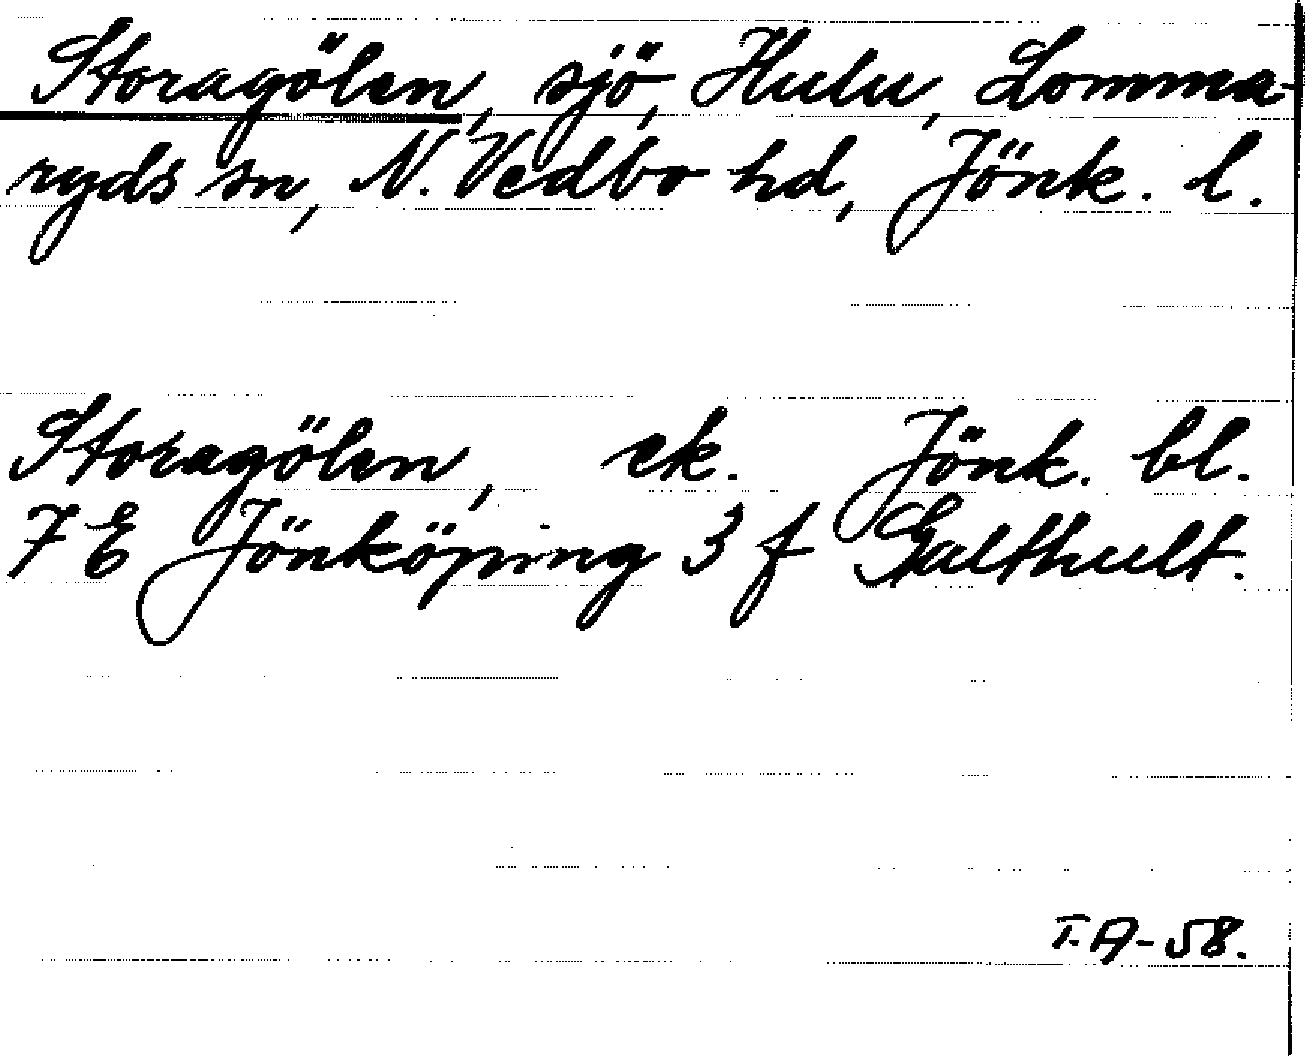 Storagölen, sjö, Hulu, Lomma-
ryds sn, N. Vedbo hd, Jönk. l.
Storagölen, ek. Jönk. bl.
7 E Jönköping 3 f Galthult.
T.A-58.